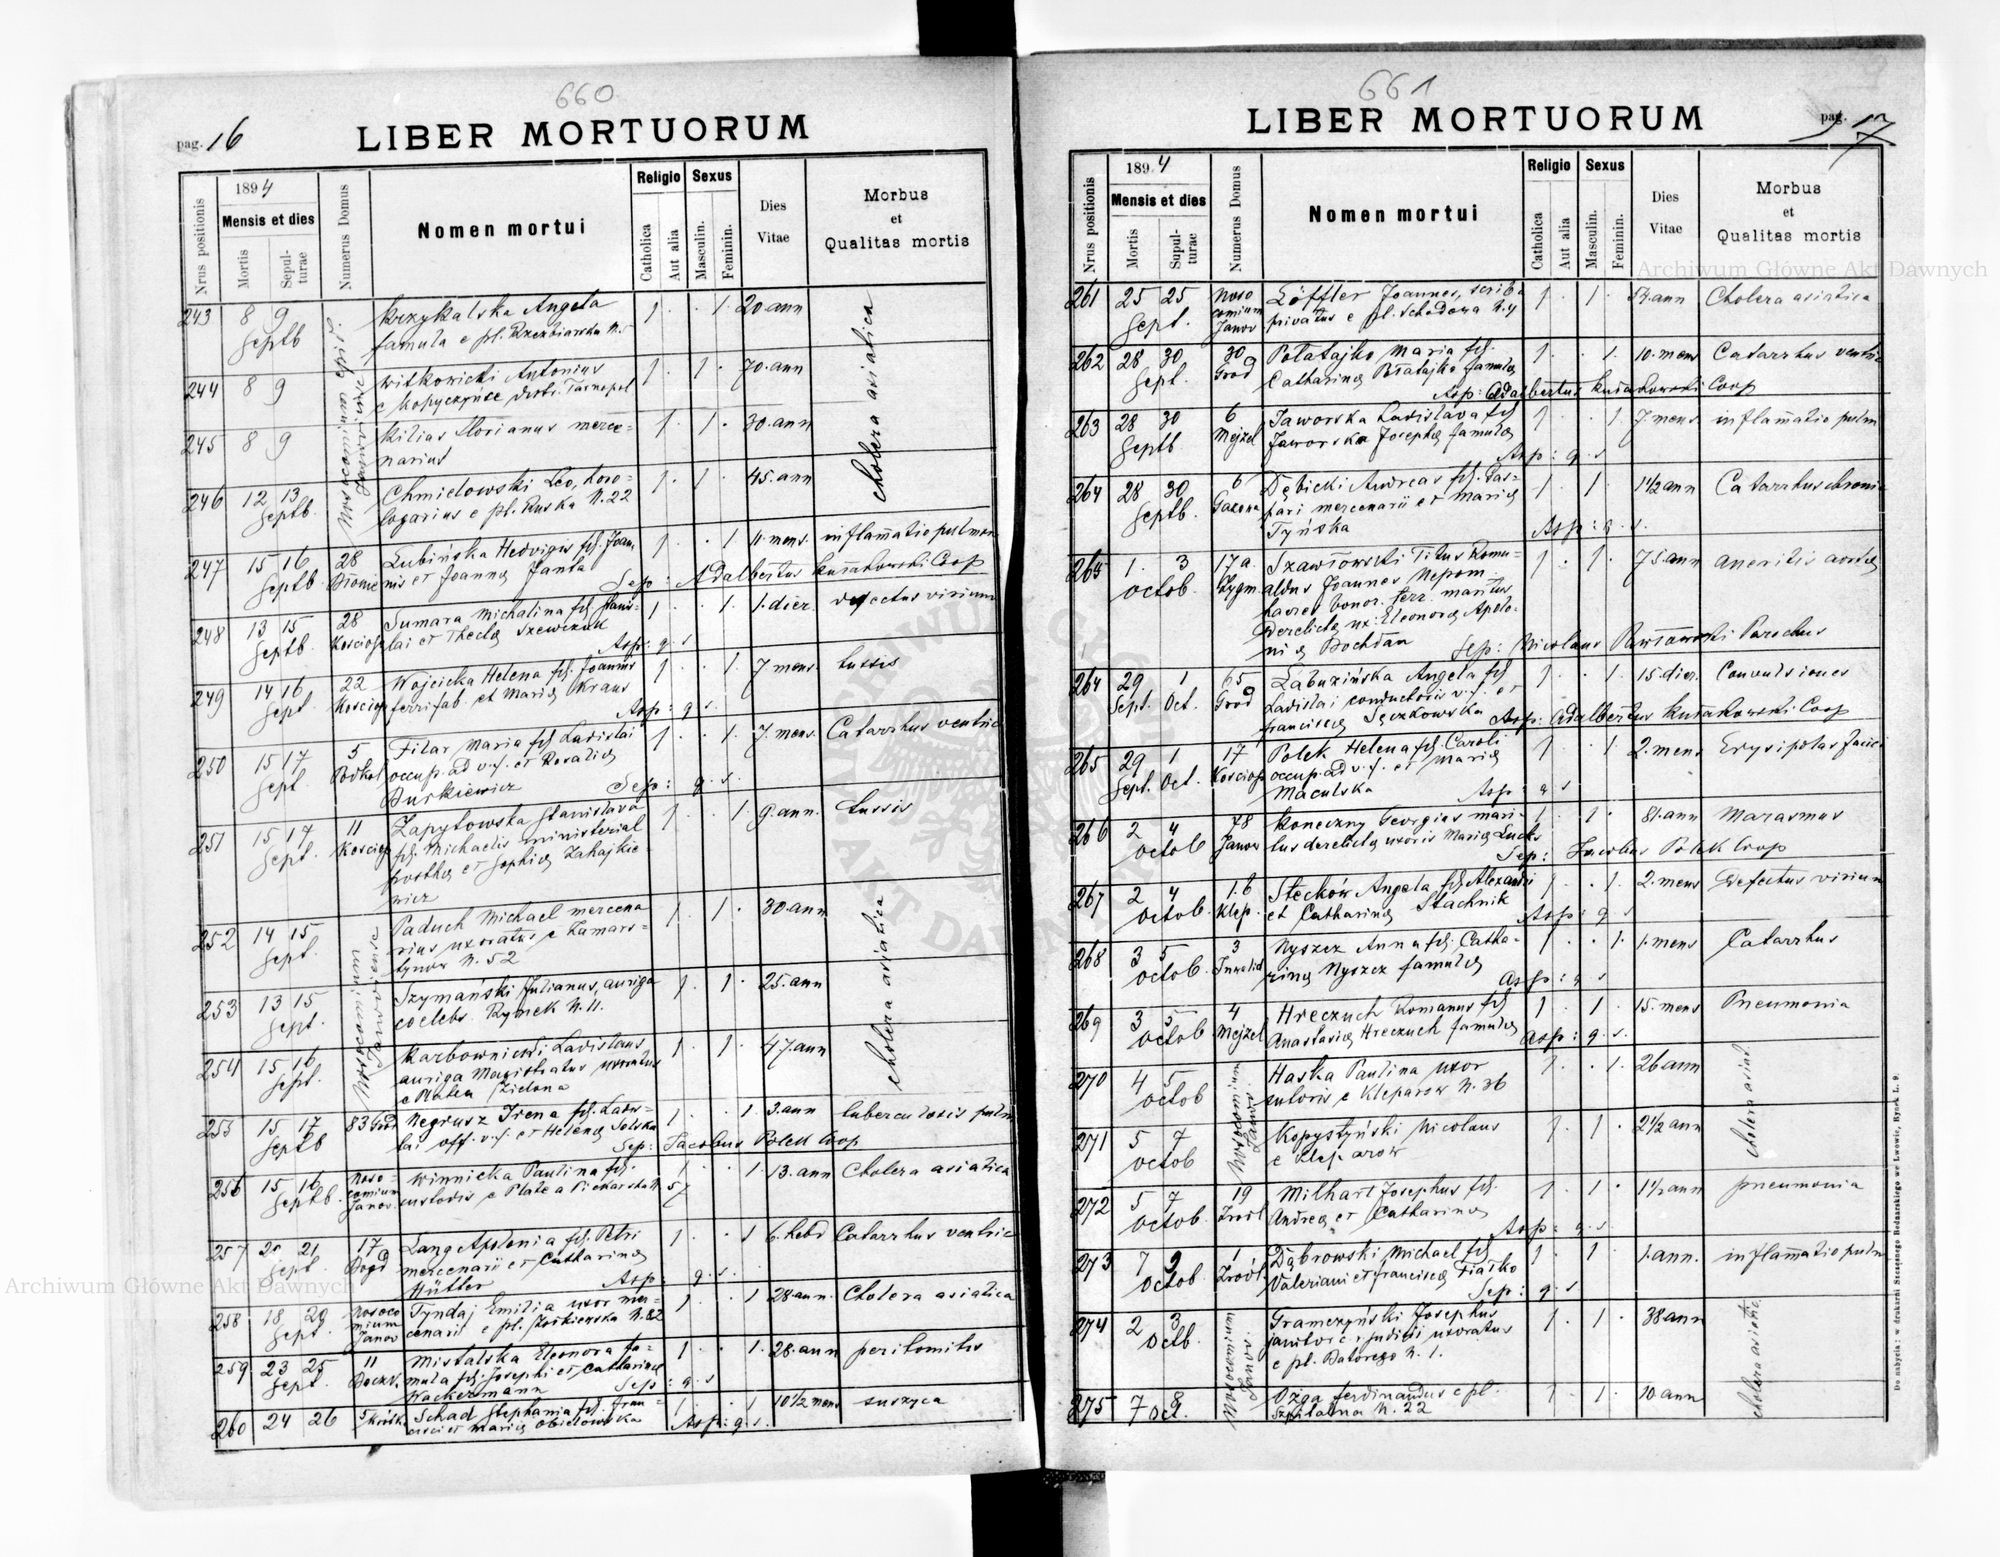 660
pag. 16
LIBER MORTUORUM
Nrus positionis
1894
Mensis et dies
Mortis
Sepul-
turae
Numerus Domus
Nomen mortui
Religio
Catholica
Aut alia
Sexus
Masculin.
Feminin.
Dies
Vitae
Morbus
et
Qualitas mortis
243 8 9 Krzykalska Angela 1 . . 1. 20. ann
Septb famula e pl. Rzezbiarska N.5
244 8 9 Witkowicki Antonius 1. 1. 70. ann
e Kopyczynce distr. Tarnopol
245 8 9 Kilias Florianus merce= 1. 1. 30. ann
narius
246 12 13 Chmielowski Leo, horo- 1. 1. 45. ann
Septb. logarius e pl. Ruska N. 22
cholera asiatica
247 15 16 28 Lubińska Hedvigis fil. Joan, 1 . . 1 11. mens. inflamatio pulmon
Septb. nis et Joanna Janta
Sep: Adalbertus Kułakowski Coop
248 13 15 28 Sumara Michalina fil. Stanis- 1 . . 1. 1. dier. defectus virium
Septb. Kościop lai et Thecla Szewczuk
Asp: q. s
249 14 16 22 Wojcicka Helena fil. Joannis 1 . . 1. 7 mens. tussis
Sept. Kościop ferrifab. et Maria Kraus
Asp: q s.
250 15 17 5 Filar Maria fil. Ladislai 1 . . 1. 7. mens. Catarrhus ventric
Sept. occup. ad v. f. et Rosalia
Burkiewicz Sep: q. s.
251 15 17 11 Zapytowska Stanislava 1 . . 1. 9. ann. tussis
Sept. Kościop fil. Michaelis ministerial
et Sophia Zahajkie-
wicz
252 14 15 Paduch Michael mercena 1. 1. 30. ann
Sept. rius uxoratus e Zamars-
tynow N. 52
253 13 15 Szymański Julianus, auriga 1. 1. 25. ann
Sept. coelebs. Rynek N. 11.
254 15 16 Karbownicki Ladislaus, 1. 1. 47. ann
Sept. auriga Magistratus uxoratus
e Platea Zielona
Nosocomium
Janoviense
cholera asiatica
255 15 17 83 Grod Negrusz Irena fil. Ladis- 1. . 1 3. ann tuberculosis pulm
Septb lai off. v. f. et Helena Solska
Sep: Jacobus Polek Coop
256 15 16 Noso- Winnicka Paulina fil. 1 . . 1. 13. ann Cholera asiatica
Septb. comium custodis e Platea Piekarska N 57
Janov.
257 20 21 17 Lang Apolonia fil. Petri 1. . 1 6. hebd Catarrhus ventric
Sept. Bogd mercenarii et Catharina
Hütler Asp: q. s.
258 18 20 Nosoco Tyndaj Emilia uxor mer- 1. . 1 28 ann. Cholera asiatica
Sept. mium cenarii e pl. Żołkienska N. 82
Janov
259 23 25 11 Mistalska Eleonora fa- 1 . 1. 28. ann peritonitis
Sept. mula fil. Josephi et Catharina
Wackermann Sep: q. s
260 24 26 Schad Stephania fil. Fran- 1. . 1 10 1/2 mens suszyca
cisci et Maria Obielowska Asp: q. s.
661
LIBER MORTUORUM
pag. 17
Nrus positionis
1894
Mensis et dies
Mortis
Sepul-
turae
Numerus Domus
Nomen mortui
Religio
Catholica
Aut alia
Sexus
Masculin.
Feminin.
Dies
Vitae
Morbus
et
Qualitas mortis
261 25 25 Noso Löffler Joannes, scriba 1. 1. 54. ann Cholera asiatica
Sept. comium privatus e pl. Schodowa N. 9
Janov
262 28 30 30 Połatajko Maria fil. 1. . 1. 10. mens Catarrhus ventric
Sept. Grod Catharina Połatajko famula
Asp: Adalbertus Kułakowski Coop
263 28 30 6 Jaworska Ladislava fil 1. . 1 7. mens inflamatio pulm
Septb. Mejzel Jaworska Josepha famula
Asp: q. s
264 28 30 6 Dębicki Andreas fil. Gas- 1. 1. 1 1/2 ann Catarrhus chronic
Septb. Gazowa pari mercenarii et Maria
Tyńska Asp: q. s.
265 1. 3 17a. Szawłowski Titus Romu- 1. 1. 75. ann aneritis aorta
octob. Zygm. aldus Joannes Nepom.
haeres bonor. terr. maritus
derelicta ux: Eleonora Apolo-
nia Bochdan Sep: Nicolaus Pawłowski Parochus
264 29 1 65 Łabuzińska Angela fil 1. . 1 15. dier. Convulsiones
Sept. Oct. Grod Ladislai conductoris v. f. et
Francisca Sęczkowska Asp: Adalbertus Kułakowski Coop
265 29 1 17 Polek Helena fil. Caroli 1 . 1 2. mens Erysipelas faciei
Sept. Oct. Kościop occup. ad v. f. et Maria
Maculska Asp: q s
266 2 4 78 Koneczny Georgius mari- 1. 1. 81. ann Marasmus
octob Janow tus derelicta uxoris Maria Lucks
Sep: Jacobus Polek Coop
267 2 4 1.b Stecków Angela fil Alexandri 1. . 1. 2. mens Defectus virium
octob. Klep. et Catharina Stachnik
Asp: q. s
268 3 5 3 Nyszcz Anna fil. Catha- 1. . 1. 1. mens Catarrhus
octob. Inwalid rina Nyszcz famula
Asp: q s
269 3 5 4 Hreczuch Romanus fil 1. 1 15. mens Pneumonia
octob Mejzel Anastasia Hreczuch famula Asp: q. s.
270 4 5 Haska Paulina uxor 1. . 1. 26 ann
octob sutoris e Kleparow N. 36
271 5 7 Kopystyński Nicolaus 1. 1. 2 1/2 ann
octob e Kleparow
Nosocomium
Janov.
cholera asiat
272 5 7 19 Milhart Josephus fil. 1. 1. 1 1/2 ann pneumonia
octob. Zrodl Andrea et Catharina
Asp: q. s.
273 7 9 1 Dąbrowski Michael fil 1. 1 1. ann. inflamatio pulm
octob. Zrodl. Valeriani et Francisca Fiałko
Sep: q. s
274 2 3 Gramczyński Josephus 1. 1. 38 ann
octb. janitor c. r. judicii uxoratus
e pl. Batorego N. 1.
275 7 8 Ożga Ferdinandus e pl. 1. 1. 10. ann
oct. Szpitalna N. 22
Nosocomium
Janov.
cholera asiatic
Do nabycia: w drukarni Szczęsnego Bednarskiego we Lwowie, Rynek L. 9.
Archiwum Główne Akt Dawnych
Archiwum Główne Akt Dawnych